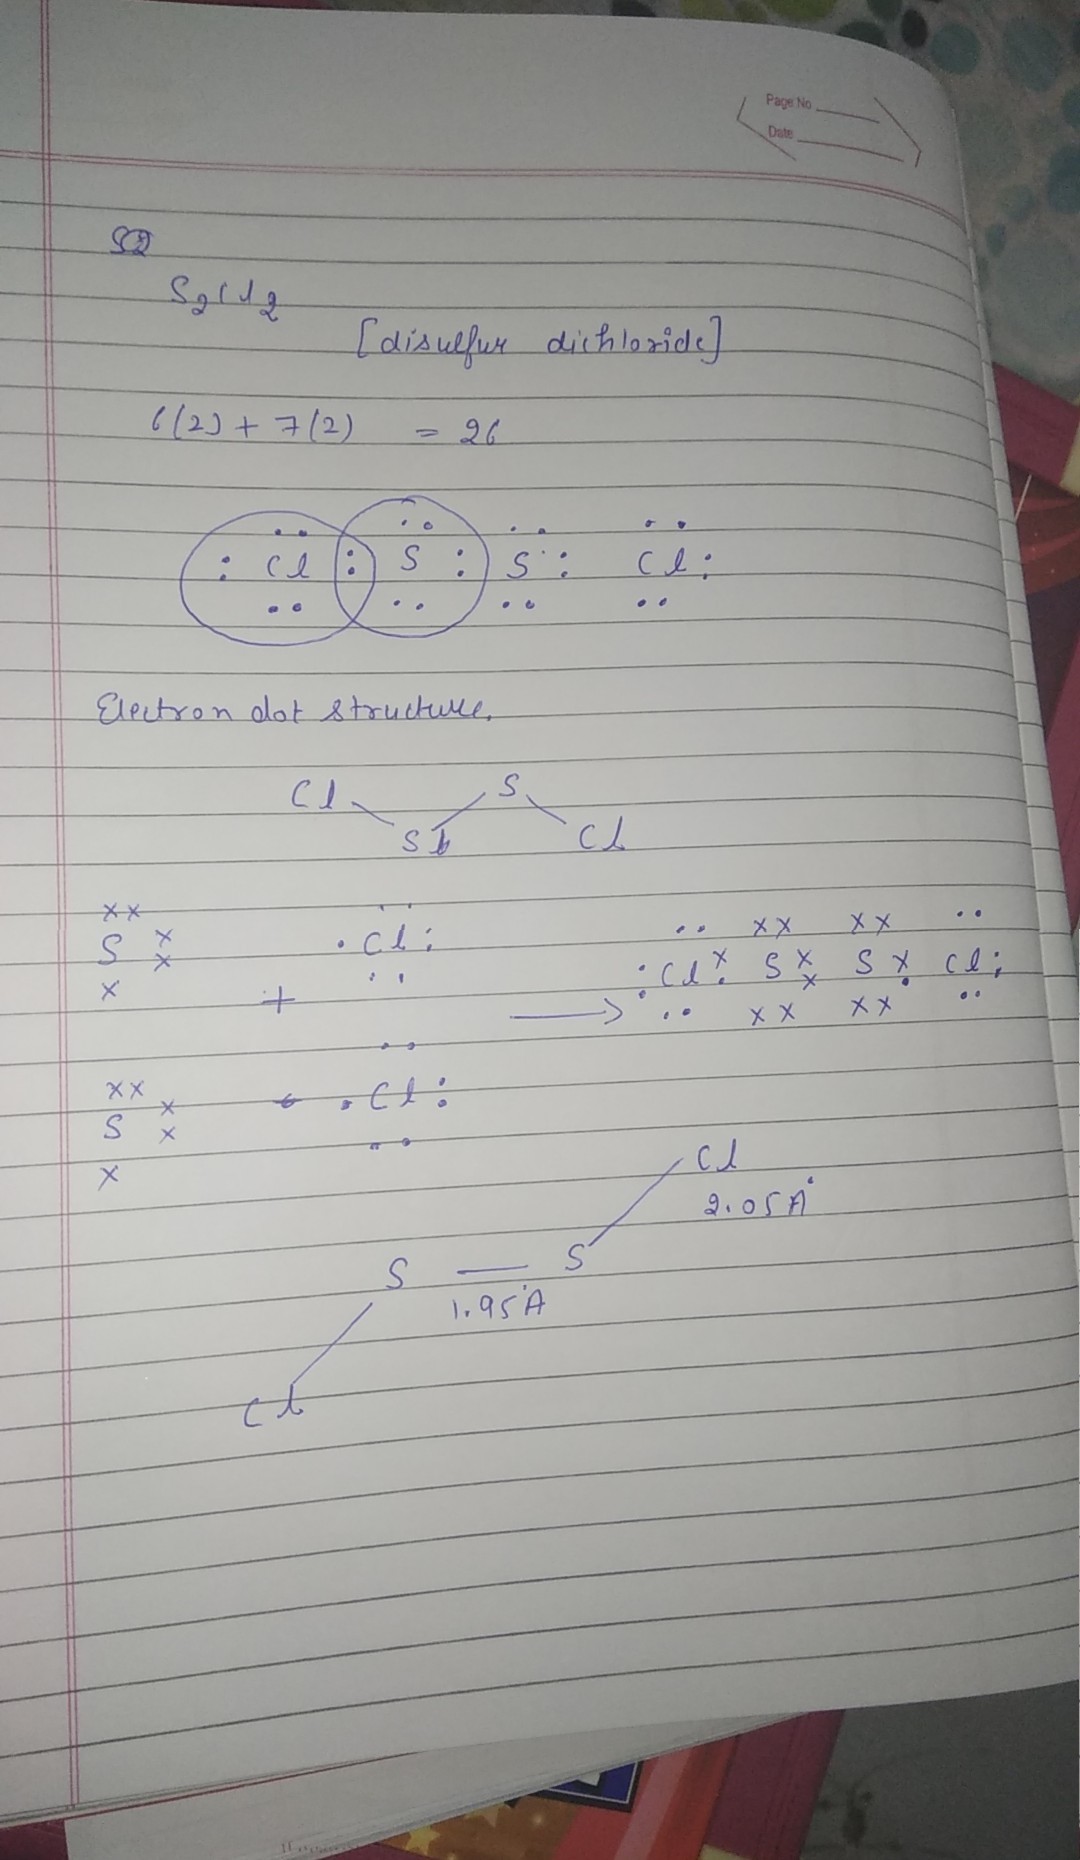 Page No
Date
S2
S2Cl2
[disulfur dichloride]
6(2) + 7(2) = 26
: Cl : S : S : Cl :
Electron dot structure.
Cl S
S Cl
xx
S x x
x
+
. Cl :
: Cl x. S x x S x. Cl :
xx
S x x
x
. Cl :
Cl
2.05 A°
S — S
1.95 A°
Cl